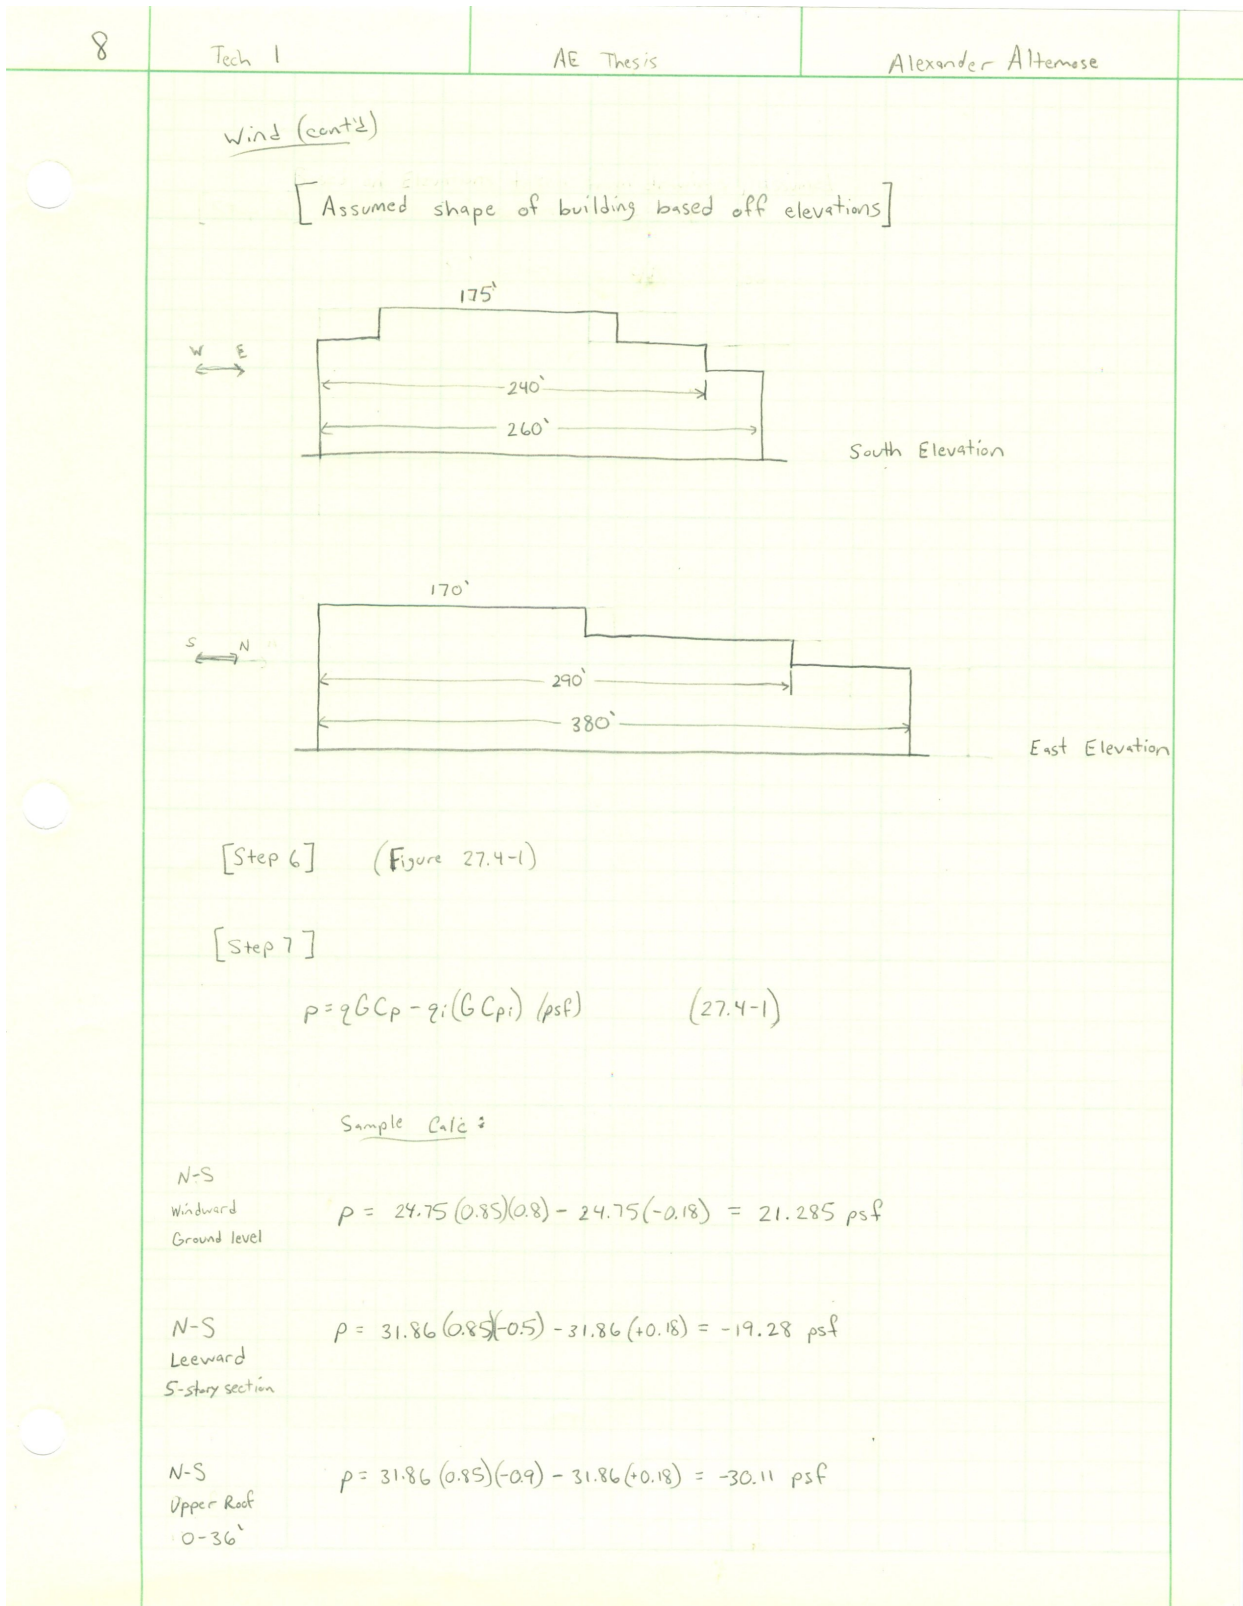 8
Tech 1
AE Thesis
Alexander Altemose
Wind (cont'd)
[Assumed shape of building based off elevations]
175'
W E
240'
260'
South Elevation
170'
S N
290'
380'
East Elevation
[Step 6] (Figure 27.4-1)
[Step 7]
p = qGCp - qi(GCpi) (psf) (27.4-1)
Sample Calc:
N-S
Windward
Ground level
p = 24.75 (0.85)(0.8) - 24.75(-0.18) = 21.285 psf
N-S
Leeward
5-story section
p = 31.86 (0.85)(-0.5) - 31.86 (+0.18) = -19.28 psf
N-S
Upper Roof
0-36'
p = 31.86 (0.85)(-0.9) - 31.86 (+0.18) = -30.11 psf